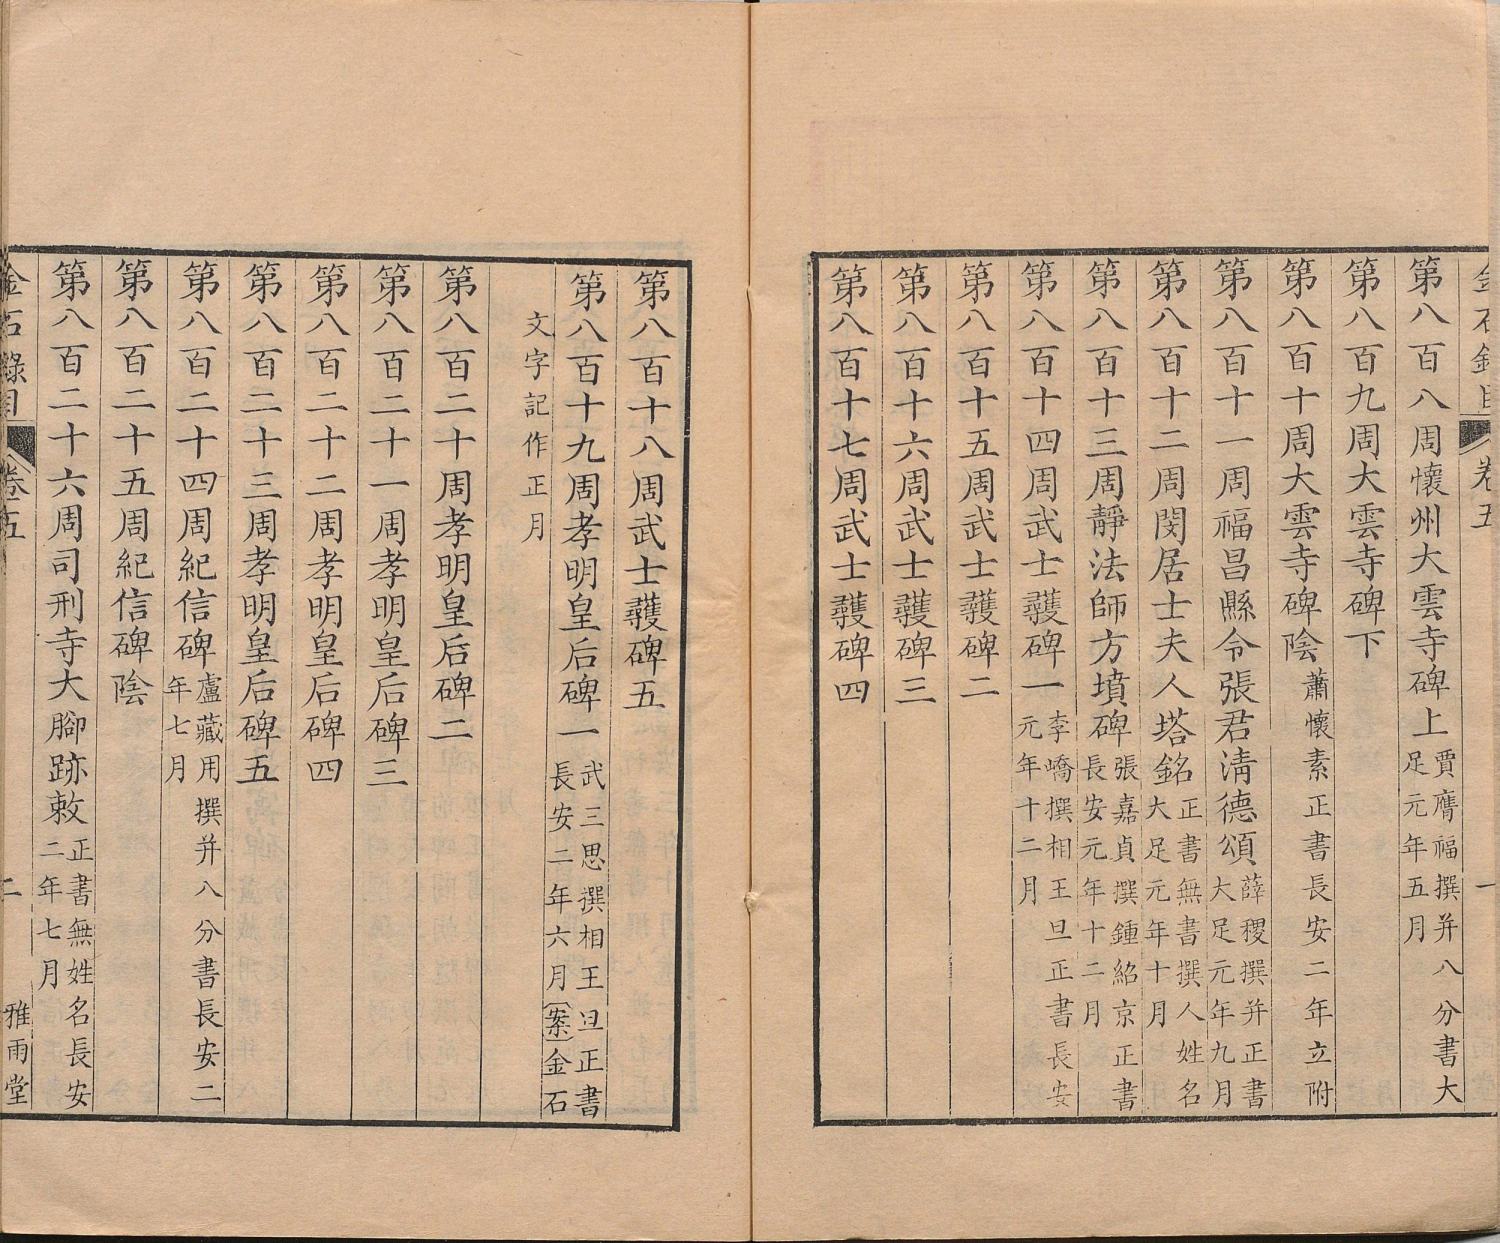 金石錄目 卷五 一
第八百八周懷州大雲寺碑上 賈膺福撰并八分書大足元年五月
第八百九周大雲寺碑下
第八百十周大雲寺碑陰 蕭懷素正書長安二年立附
第八百十一周福昌縣令張君清德頌 薛稷撰并正書大足元年九月
第八百十二周閔居士夫人塔銘 正書無書撰人姓名大足元年十月
第八百十三周靜法師方墳碑 張嘉貞撰鍾紹京正書長安元年十二月
第八百十四周武士彠碑一 李嶠撰相王旦正書長安元年十二月
第八百十五周武士彠碑二
第八百十六周武士彠碑三
第八百十七周武士彠碑四
第八百十八周武士彠碑五
第八百十九周孝明皇后碑一 武三思撰相王旦正書長安二年六月(案)金石
文字記作正月
第八百二十周孝明皇后碑二
第八百二十一周孝明皇后碑三
第八百二十二周孝明皇后碑四
第八百二十三周孝明皇后碑五
第八百二十四周紀信碑 盧藏用撰并八分書長安二年七月
第八百二十五周紀信碑陰
第八百二十六周司刑寺大腳跡敕 正書無姓名長安二年七月
金石錄目 卷五 二 雅雨堂